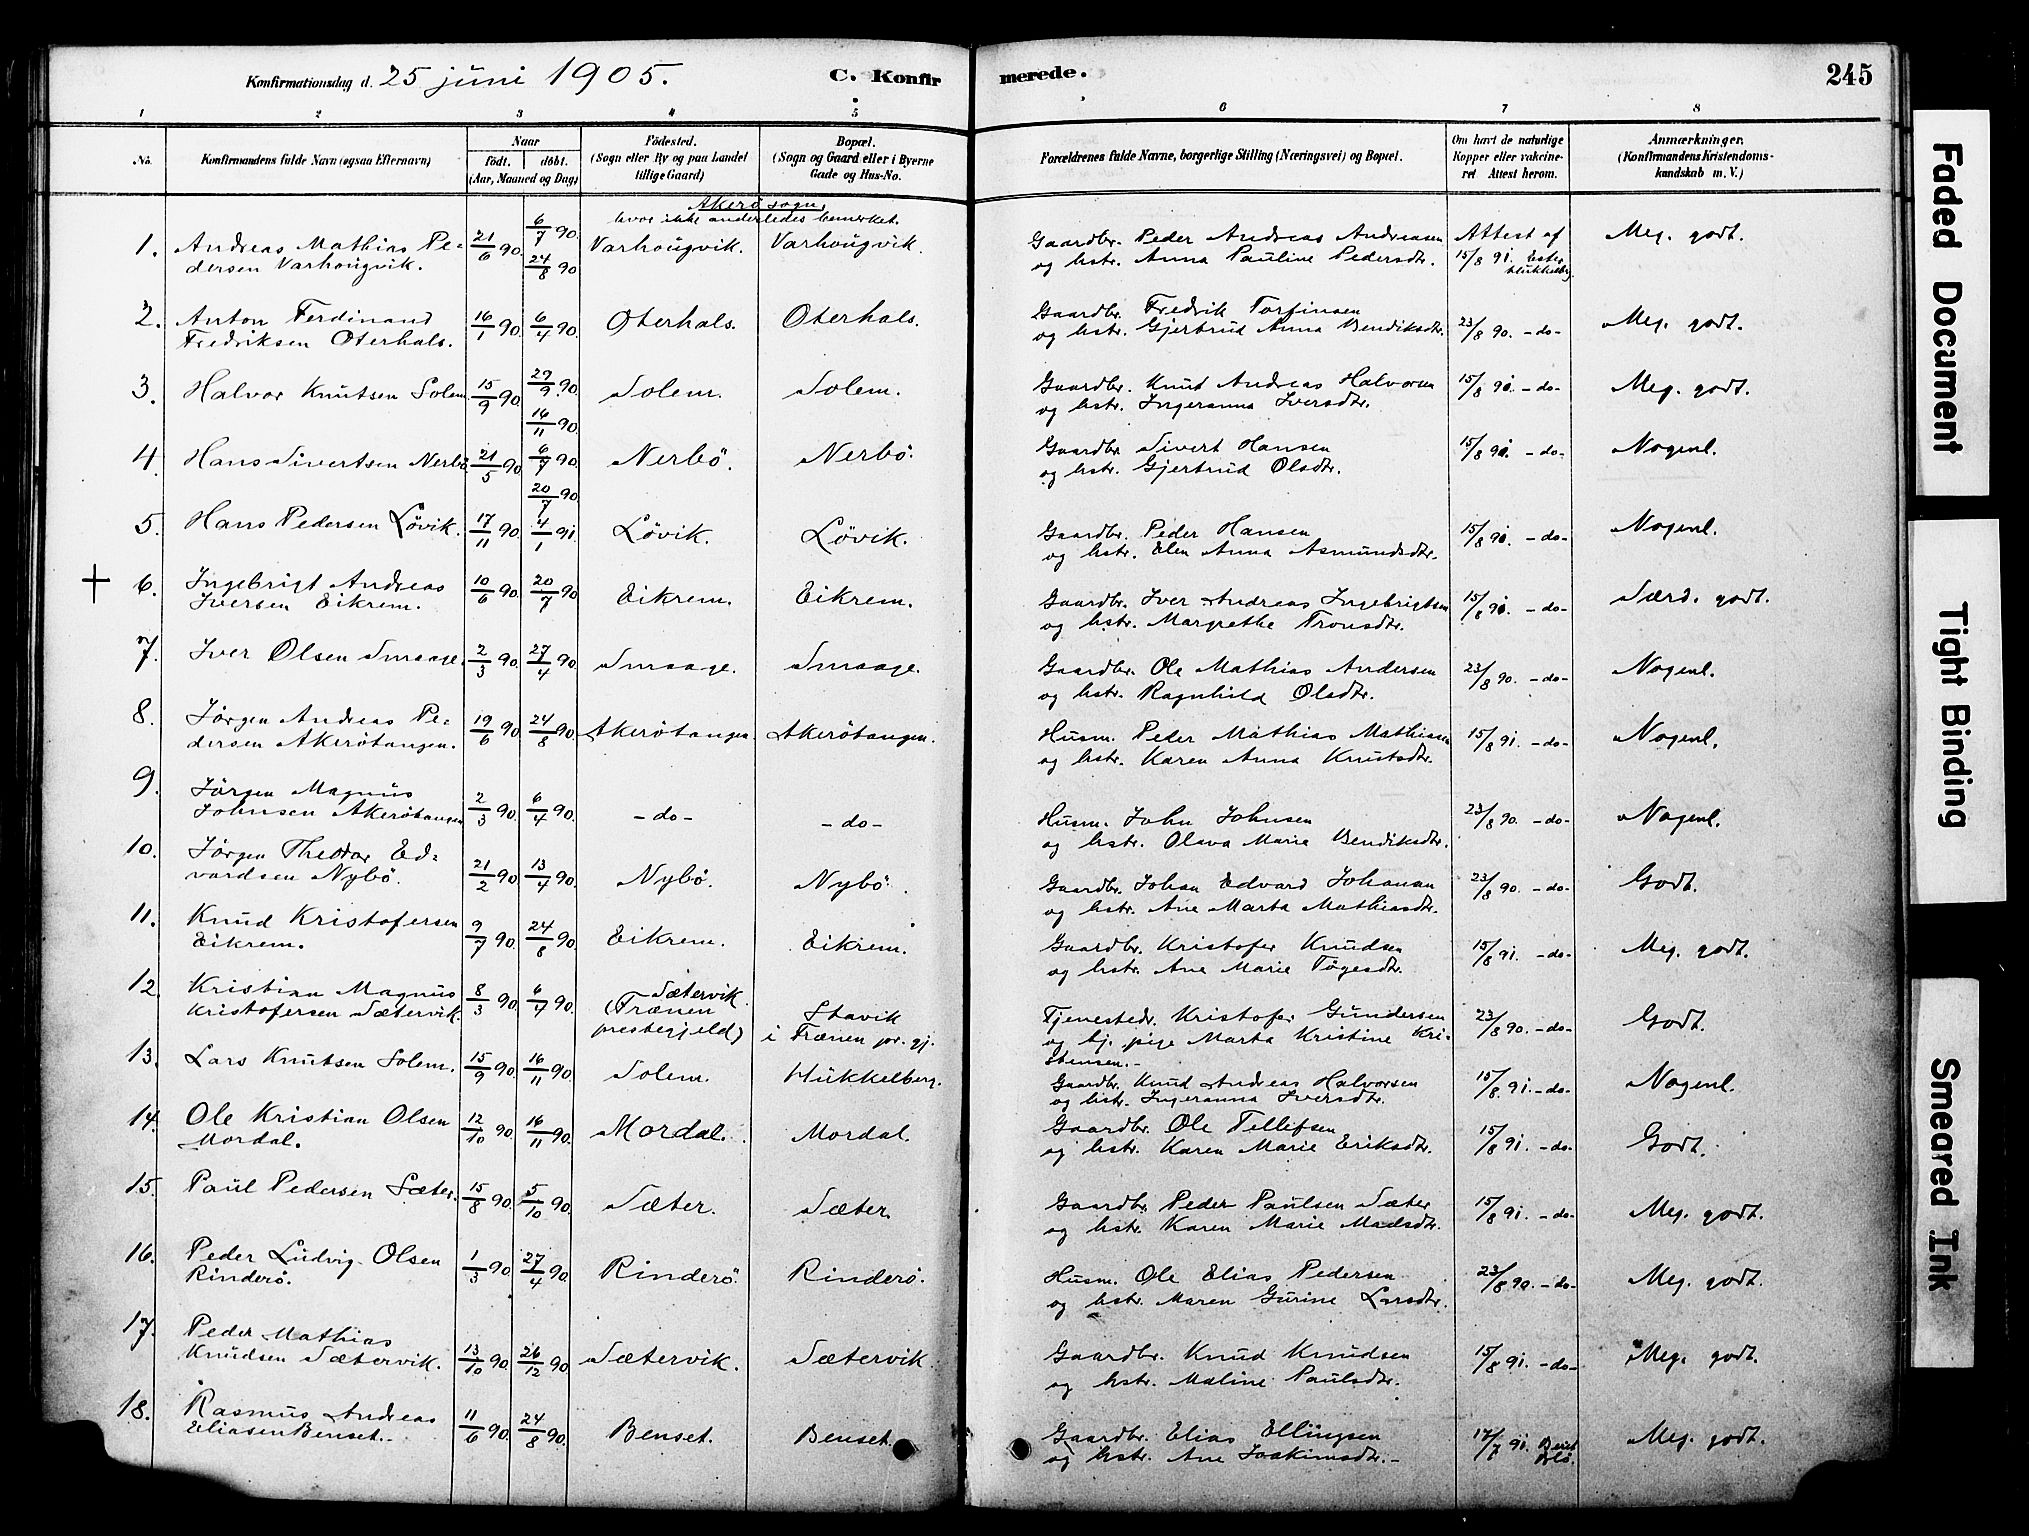 Konfirmationsdag d. 25 juni 1905. C. Konfirmerede. 245
1 2 3 4 5 6 7 8
No. Konfirmandens fulde Navn (ogsaa Efternavn) Naar födt. döbt. (Aar, Maaned og Dag) Födested. (Sogn eller By og paa Landet tillige Gaard) Bopæl. (Sogn og Gaard eller i Byerne Gade og Hus-No. Forældrenes fulde Navne, borgerlige Stilling (Næringsvei) og Bopæl. Om havt de naturlige Kopper eller vakcineret Attest herom. Anmærkninger. (Konfirmandens Kristendomskundskab m. V.)
Akerö sogn,
hvor ikke anderledes bemerket.
1. Andreas Mathias Pe- 21/6 90. 6/7 90. Varhougvik. Varhougvik. Gaardbr. Peder Andreas Andreasen Attest af Meg. godt.
dersen Varhougvik. 24/8 90 og hstr. Anna Pauline Pedersdtr. 15/8 91.
2. Anton Ferdinand 16/1 90. 6/4 90. Oterhals. Oterhals. Gaardbr. Fredrik Torfinsen 23/8 90. -do- Meg. godt.
Fredriksen Oterhals. og hstr. Gjertrud Anna Bendiksdtr.
3. Halvor Knutsen Solem 15/9 90. 29/9 90. 16/11 90. Solem. Solem. Gaardbr. Knud Andreas Halvorsen 15/8 91. -do- Meg. godt.
og hstr. Ingeranna Iversdtr.
4. Hans Sivertsen Nerbö 21/5 90 6/7 90. 20/7 90 Nerbö. Nerbö. Gaardbr. Sivert Hansen 15/8 91. -do- Nogenl.
og hstr. Gjertrud Olsdtr.
5. Hans Pedersen Lövik. 17/11 90. 4/1 91. Lövik. Lövik. Gaardbr. Peder Hansen 15/8 91. -do- Nogenl.
og hstr. Elen Anna Asmundsdtr.
+ 6. Ingebrigt Andreas 10/6 90. 20/7 90 Eikrem. Eikrem. Gaardbr. Iver Andreas Ingebrigtsen 15/8 91. -do- Særd. godt.
Iversen Eikrem. og hstr. Margrethe Tronsdtr.
7. Iver Olsen Smaage. 2/3 90. 27/4 90. Smaage. Smaage. Gaardbr. Ole Mathias Andersen 23/8 90. -do- Nogenl.
og hstr. Ragnhild Olsdtr.
8. Jörgen Andreas Pe- 19/6 90. 24/8 90. Akerötangen Akerötangen. Husm. Peder Mathias Mathiasen 15/8 91. -do- Nogenl.
dersen Akerötangen. og hstr. Karen Anna Knutsdtr.
9. Jörgen Magnus 2/3 90. 6/4 90. -do- -do- Husm. John Johnsen 23/8 90. -do- Nogenl.
Johnsen Akerötangen og hstr. Olava Marie Bendiksdtr.
10. Jörgen Theodor Ed- 21/2 90. 13/4 90. Nybö. Nybö. Gaardbr. Johan Edvard Johansen 23/8 90. -do- Godt.
vardsen Nybö. og hstr. Ane Marta Mathiasdtr.
11. Knud Kristofersen 9/7 90. 24/8 90. Eikrem. Eikrem. Gaardbr. Kristofer Knudsen 15/8 91. -do- Meg. godt.
Eikrem. og hstr. Ane Marie Tögesdtr.
12. Kristian Magnus 8/3 90. 6/7 90. Sætervik Stavik Tjenestedr. Kristofer Gundersen 23/8 90. -do- Godt.
Kristofersen Sætervik. (Frænen i Frænen pr. gj. og tj. pige Marta Kristine Kri-
prestegjeld) stensen.-
13. Lars Knutsen Solem. 15/9 90. 16/11 90. Solem. Hukkelberg. Gaardbr. Knud Andreas Halvorsen 15/8 91. -do- Nogenl.
og hstr. Ingeranna Iversdtr.
14. Ole Kristian Olsen 12/10 90. 16/11 90. Mordal. Mordal. Gaardbr. Ole Tellefsen 15/8 91. -do- Godt.
Mordal. og hstr. Karen Marie Eriksdtr.
15. Paul Pedersen Sæter. 15/8 90. 5/10 90. Sæter. Sæter. Gaardbr. Peder Paulsen Sæter 15/8 91. -do- Meg. godt.
og hstr. Karen Marie Madsdtr.
16. Peder Ludvig Olsen 1/3 90 27/4 90. Rinderö. Rinderö. Husm. Ole Elias Pedersen 23/8 90. -do- Meg. godt.
Rinderö. og hstr. Maren Gurine Larsdtr.
17. Peder Mathias 13/10 90. 26/12 90. Sætervik. Sætervik. Gaardbr. Knud Knudsen 15/8 91. -do- Meg. godt.
Knudsen Sætervik. og hstr. Maline Paulsdtr.
18. Rasmus Andreas 11/6 90. 24/8 90. Benset. Benset. Gaardbr. Elias Ellingsen 17/7 91. Meg. godt.
Eliasen Benset.- og hstr. Ane Joakimsdtr.-
Faded Document
Tight Binding
Smeared Ink